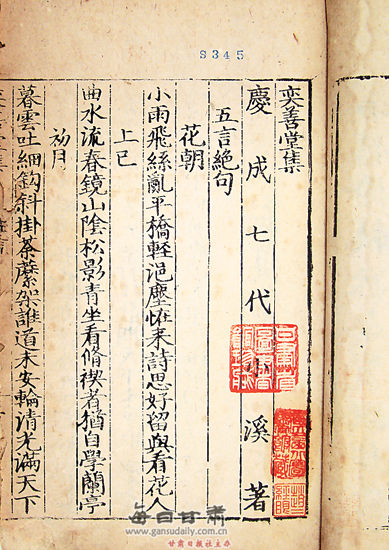 S345
奕善堂集
慶成七代小溪著
五言絕句
花朝
小雨飛絲亂平橋輕浥塵惟来詩思好留與看花人
上巳
曲水流春鏡山陰松影青坐看脩禊者猶自學蘭亭
初月
暮雲吐細鈎斜掛荼蘼架誰道未安輪清光滿天下
每日甘肃
www.gansudaily.com.cn
甘肃日报社主办